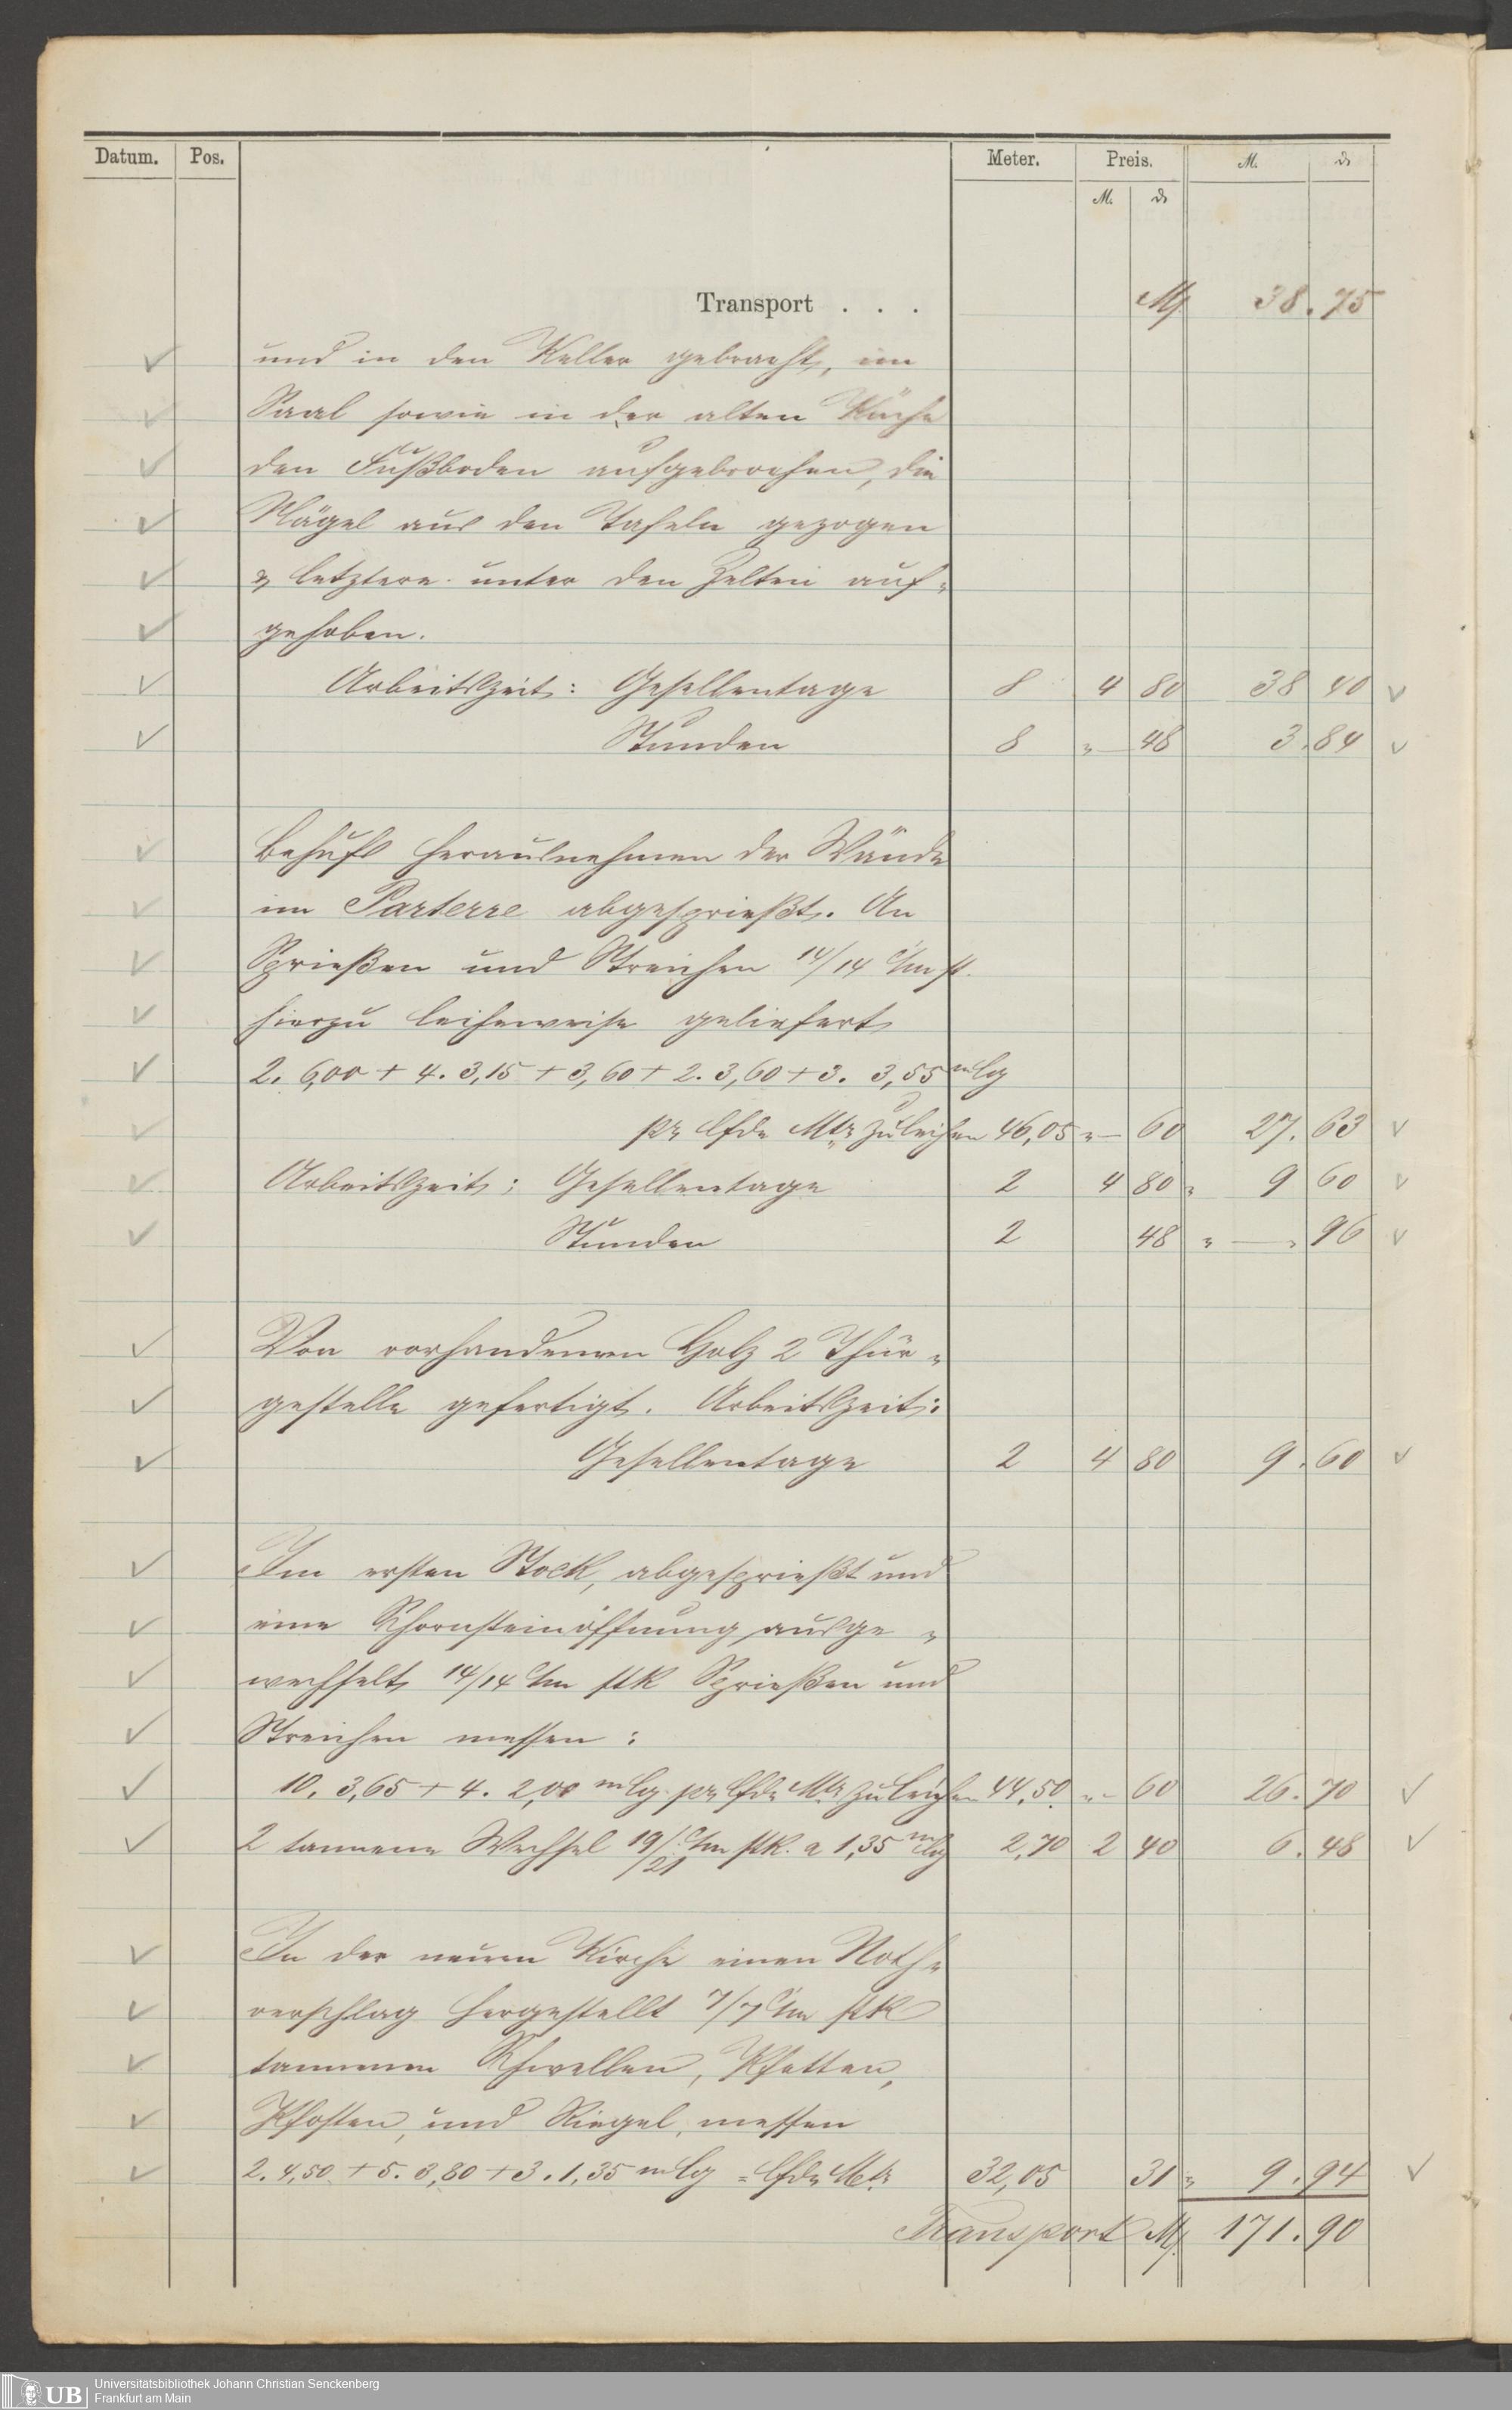 Datum. Pos. Meter. Preis. M. ₰
M. ₰
Transport . . . M 38.75
und in den Keller gebracht, im
Saal sowie in der alten Küche
den Fußboden aufgebrochen, die
Nägel aus den Tafeln gezogen
& letztere unter den Zelten auf-
gehoben.
Arbeitszeit: Gesellentage 8 4 80 38 40
Stunden 8 " — 48 3.84
Behufs herausnehmen der Wände
im Parterre abgesprießt. An
Sprießen und Streichen 14/14 c/m st.
hierzu leihweise geliefert
2. 6,00 + 4. 3,15 + 3,60 + 2. 3,60 + 3. 3,55 m lg
pr lfde Mtr zu leihen 46,05 " — 60 27.63
Arbeitszeit: Gesellentage 2 4 80 " 9 60
Stunden 2 48 " — " 96
Von vorhandenen Holz 2 Thür-
gestelle gefertigt. Arbeitszeit:
Gesellentage 2 4 80 9.60
Im ersten Stock, abgesprießt und
eine Schornsteinöffnung ausge-
wechselt, 14/14 c/m stk Sprießen und
Streichen messen:
10. 3,65 + 4. 2,00 m lg. pr lfde Mtr zu leihen 44,50 " - 60 26.70
2 tannene Wechsel 19/21 c/m stk. a 1,35 m lg 2,70 2 40 6.48
In der neuen Kirche einen Noth-
verschlag hergestellt 7/7 c/m stk
tannenen Schwellen, Pfetten,
Pfosten, und Riegel, messen
2. 4,50 + 5. 3,80 + 3. 1,35 m lg = lfde Mtr 32,05 31 " 9.94
Transport M 171.90
UB
Universitätsbibliothek Johann Christian Senckenberg
Frankfurt am Main